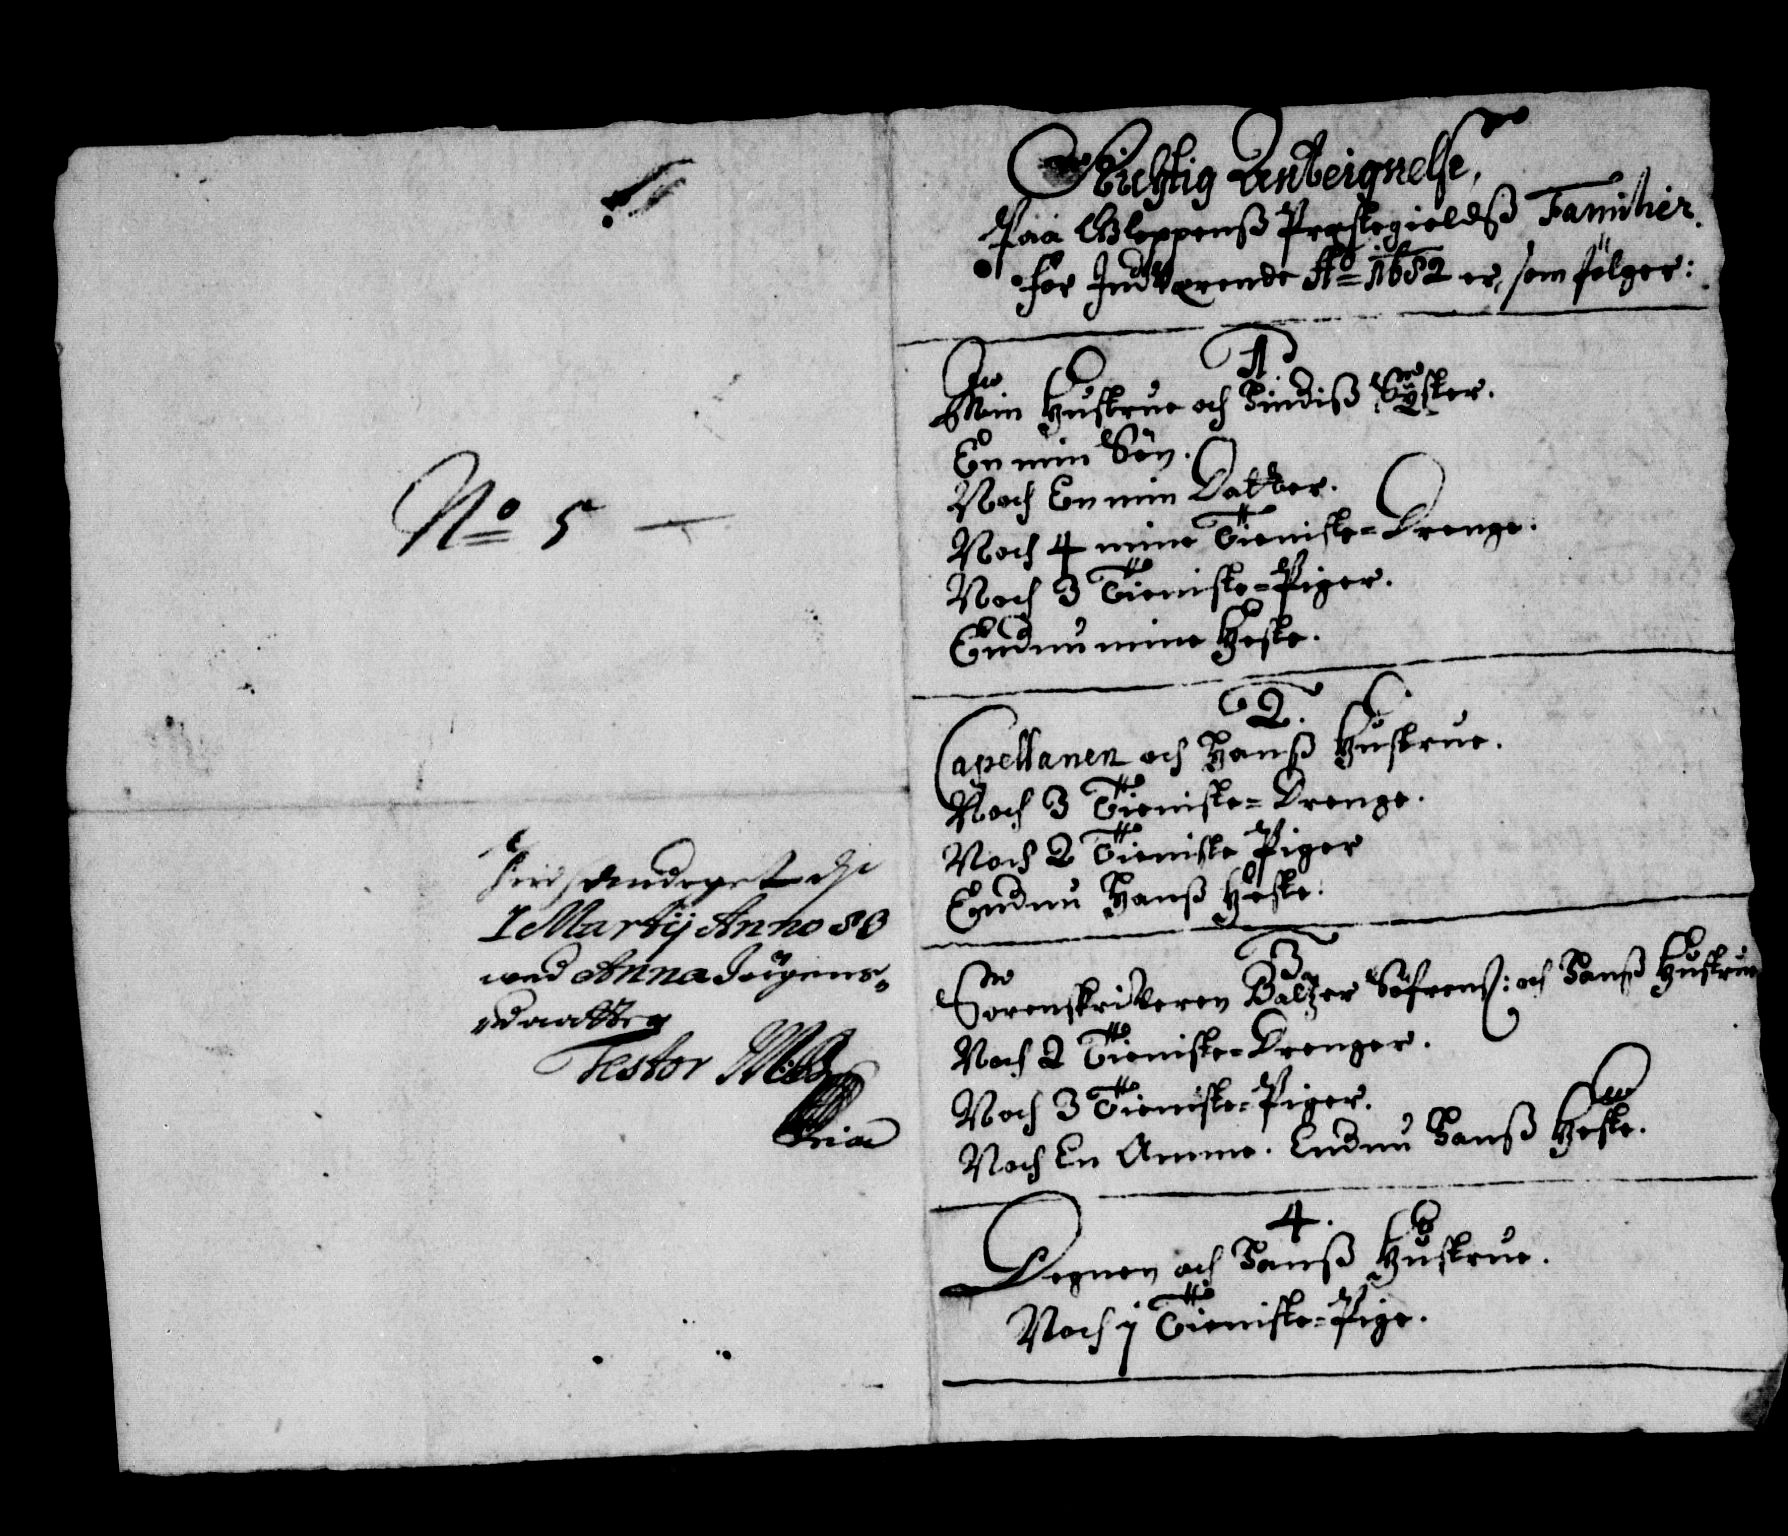 No 5 —
1 Martij Anno 83
wed Anna Jörgens-
daatter
Testor
Richtig Anteignelse,
Paa Gleppenß Præstegieldß Familier.
for Indwærende Ao 1682 er, som følger:
1.
Min Hustrue och Hindiß Syster.
En min Sön.
Noch En min Datter.
Noch 4 mine Tieniste-Drenge.
Noch 3 Tieniste-Piger.
Endnu mine Heste.
2.
Capellanen och Hanß Hustrue.
Noch 3 Tieniste-Drenge.
Noch 2 Tieniste Piger
Endnu Hanß Heste.
3.
Sorenskriveren Baltzer Söfrenß: och Hanß Hustrue
Noch 2 Tieniste-Drenger.
Noch 3 Tieniste-Piger.
Noch En Amme. Endnu Hanß Heste.
4.
Degnen och Hanß Hustrue.
Noch j Tieniste-Pige.